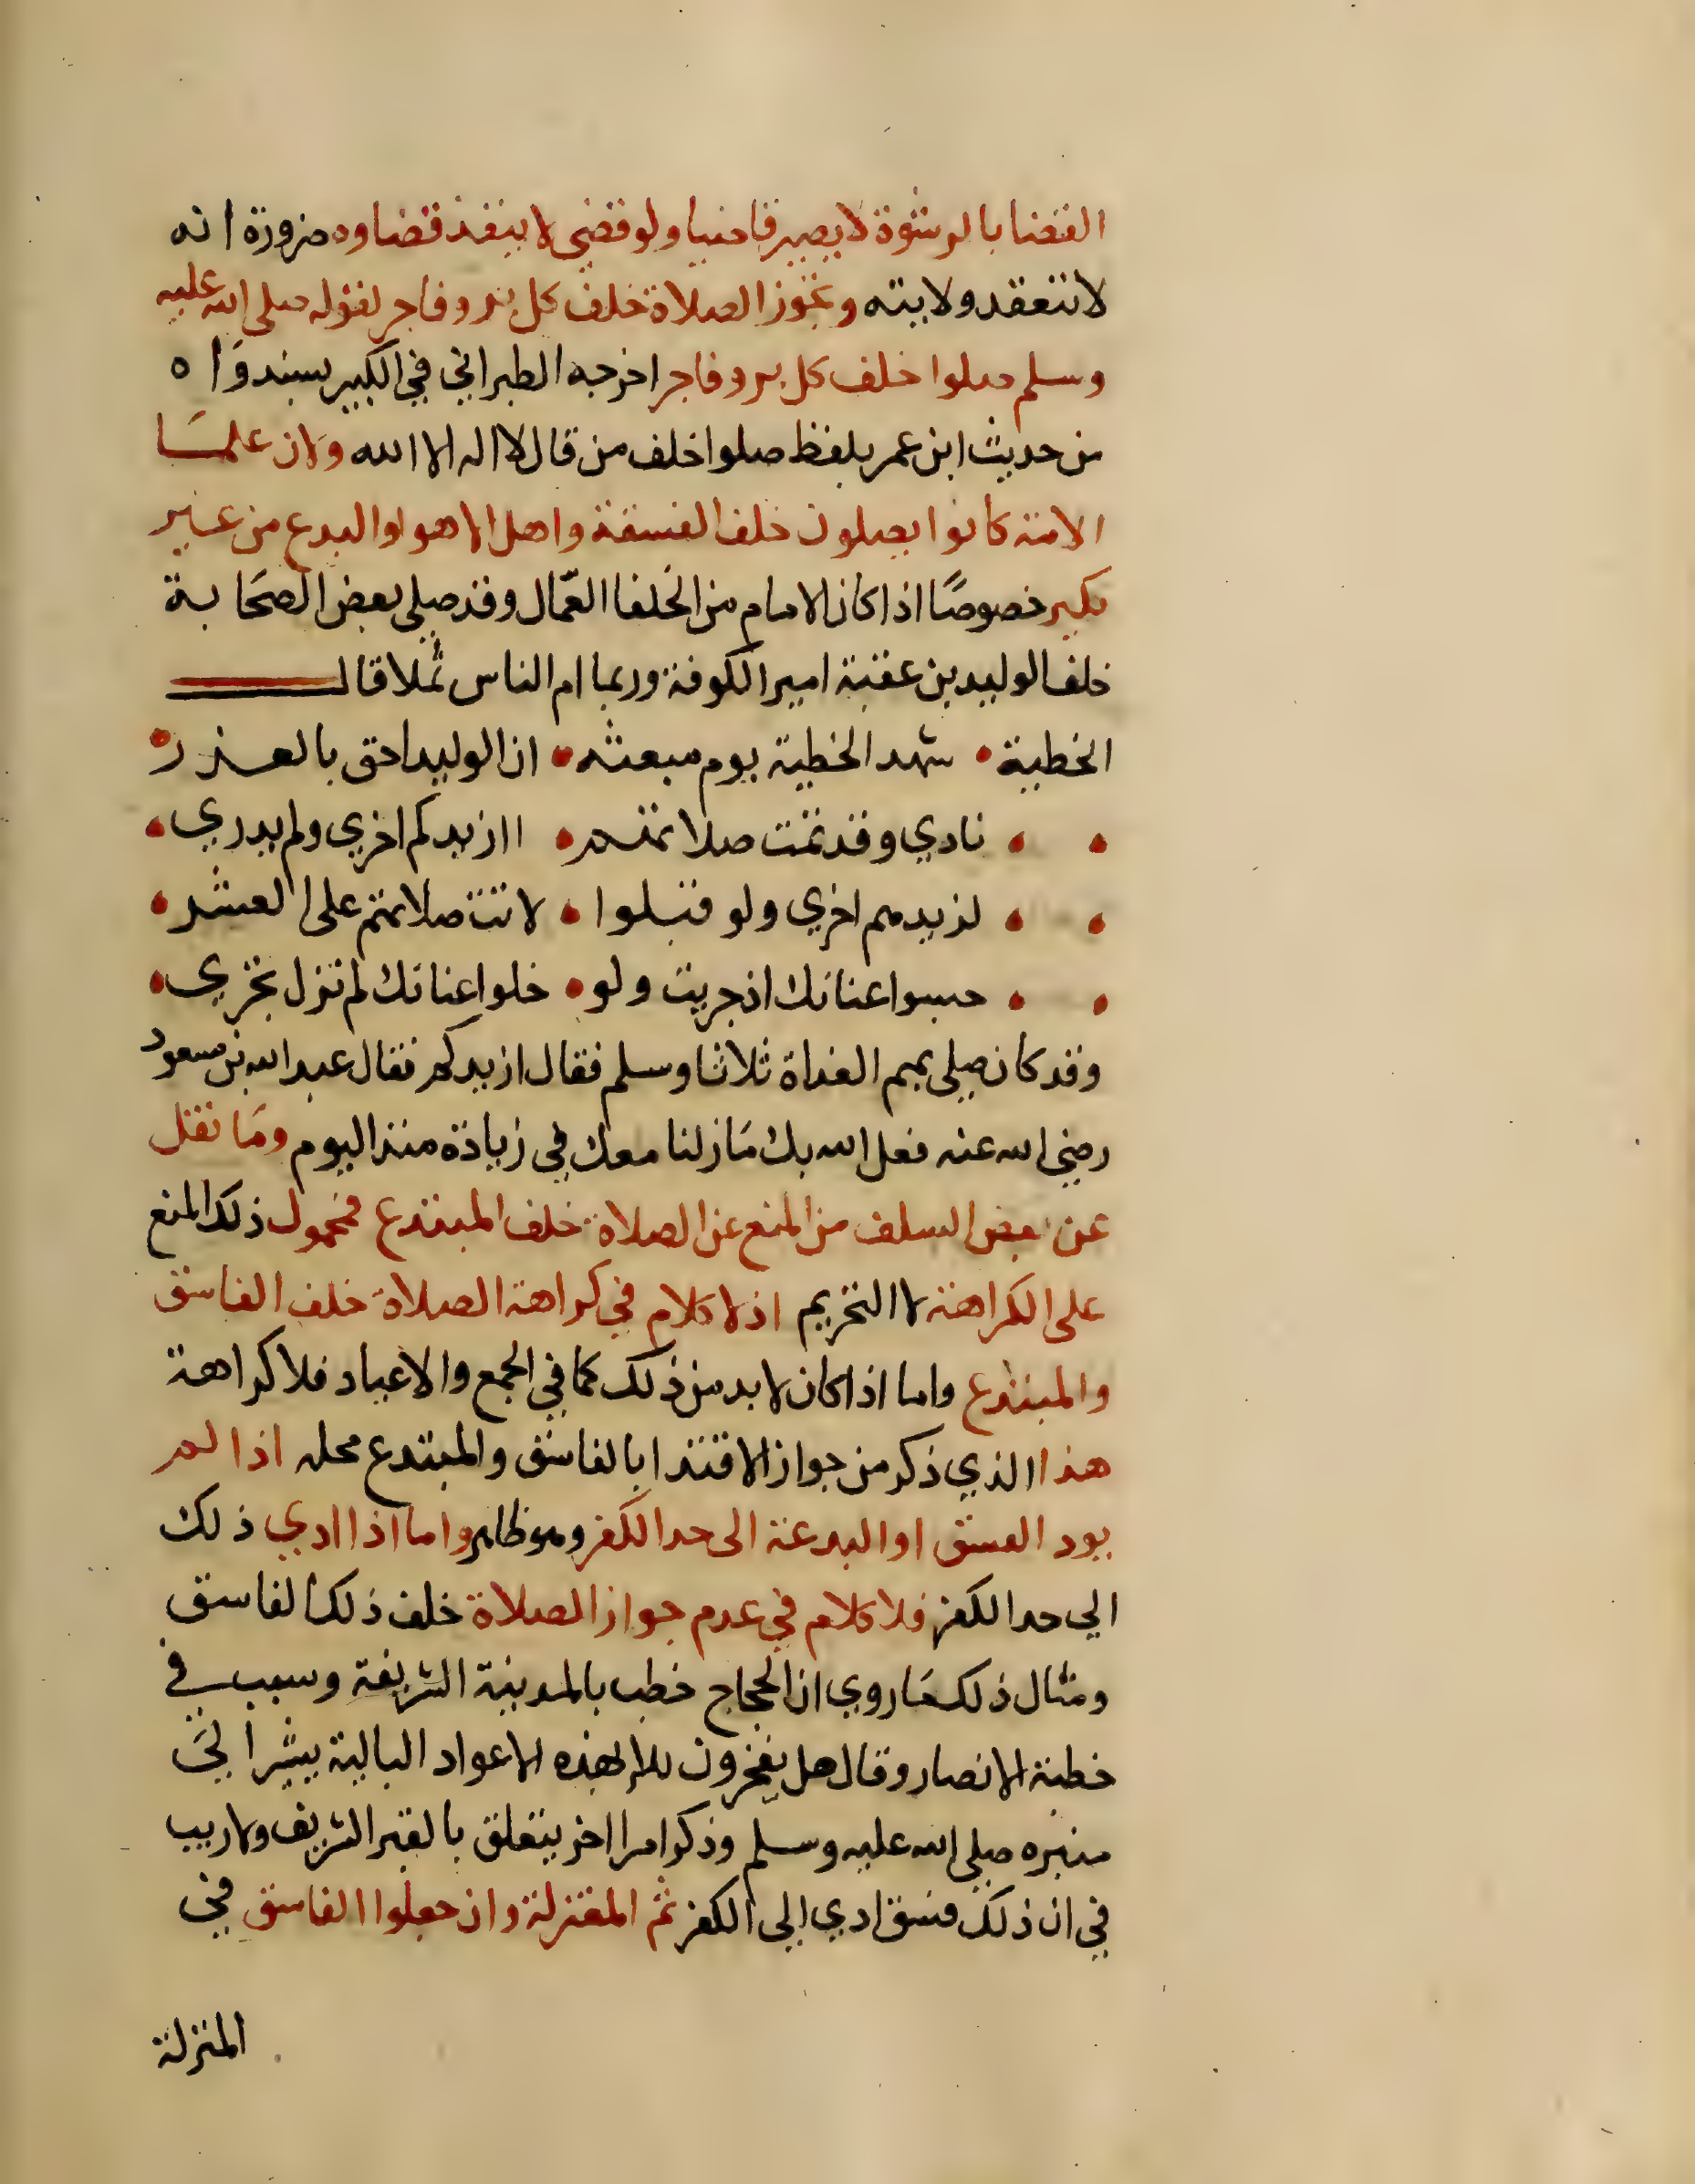 القضا بالرشوة لا يصير قاضيا ولو قضي لا ينفذ قضاوه ضرورة انه
لا تنعقد ولايته وتجوز الصلاة خلف كل بر وفاجر لقوله صلى الله عليه
وسلم صلوا خلف كل بر وفاجر اخرجه الطبراني في الكبير بسند واه
من حديث ابن عمر بلفظ صلوا خلف من قال لا اله الا الله ولان علمسا
الامة كانوا يصلون خلف الفسقة واهل الاهوا والبدع من غير
نكير خصوصًا اذا كان الامام من الخلفا العمّال وقد صلي بعض الصحابة
خلف الوليد بن عقبة امير الكوفة وربما ام الناس ثملا قال
الخطية • شهد الخطية يوم مبعثه • ان الوليد احق بالعذر ه
• • نادي وقد تمت صلاتهم • اازيدكم اخري ولم يدري •
• • لزيدهم اخري ولو قبلوا • لاتت صلاتهم على العشر •
• • حبسوا عنانك اذ جريت ولو • خلوا عنانك لم تزل تجري •
وقد كان صلي بهم الغداة ثلاثا وسلم فقال ازيدكم فقال عبد الله بن مسعود
رضي الله عنه فعل الله بك مَا زلنا معك في زيادة منذ اليوم ومَا نقل
عن بعض السلف من المنع عن الصلاة خلف المبتدع فمحمول ذلك المنع
على الكراهة لا التحريم اذ لا كلام في كراهة الصلاة خلف الفاسق
والمبتدع واما اذا كان لا بد من ذلك كما في الجمع والاعياد فلا كراهة
هذا الذي ذكر من جواز الاقتدا بالفاسق والمبتدع محله اذا لم
يود الفسق او البدعة الى حد الكفر وهو ظاهر واما اذا ادي ذلك
الي حد الكفر فلا كلام في عدم جواز الصلاة خلف ذلك الفاسق
ومثال ذلك مَا روي ان الحجاج خطب بالمدينة الشريفة وسبب في
خطبة الانصار وقال هل يفخرون للا بهذه الاعواد البالية يشير الي
منبره صلي الله عليه وسلم وذكر امرا اخر يتعلق بالقبر الشريف ولا ريب
في ان ذلك فسق ادي الي الكفر ثم المعتزلة وان جعلوا الفاسق في
المنزلة